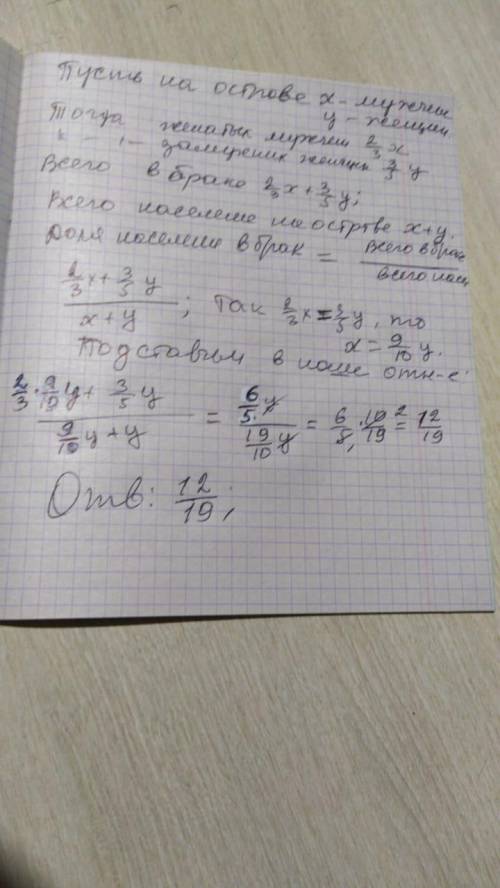 Пусть на острове x - мужчин
y - женщин
Тогда женатых мужчин 2/3 x
замужних женщин 3/5 y
Всего в браке 2/3 x + 3/5 y;
Всего население на острове x+y.
Доля населения в брак = Всего в брак / всего насел
(2/3 x + 3/5 y) / (x + y) ; Так 2/3 x = 3/5 y, то
x = 9/10 y.
Подставим в наше отн-е
(2/3 · 9/10 y + 3/5 y) / (9/10 y + y) = (6/5 y) / (19/10 y) = 6/5 · 10/19 = 12/19
Отв: 12/19;